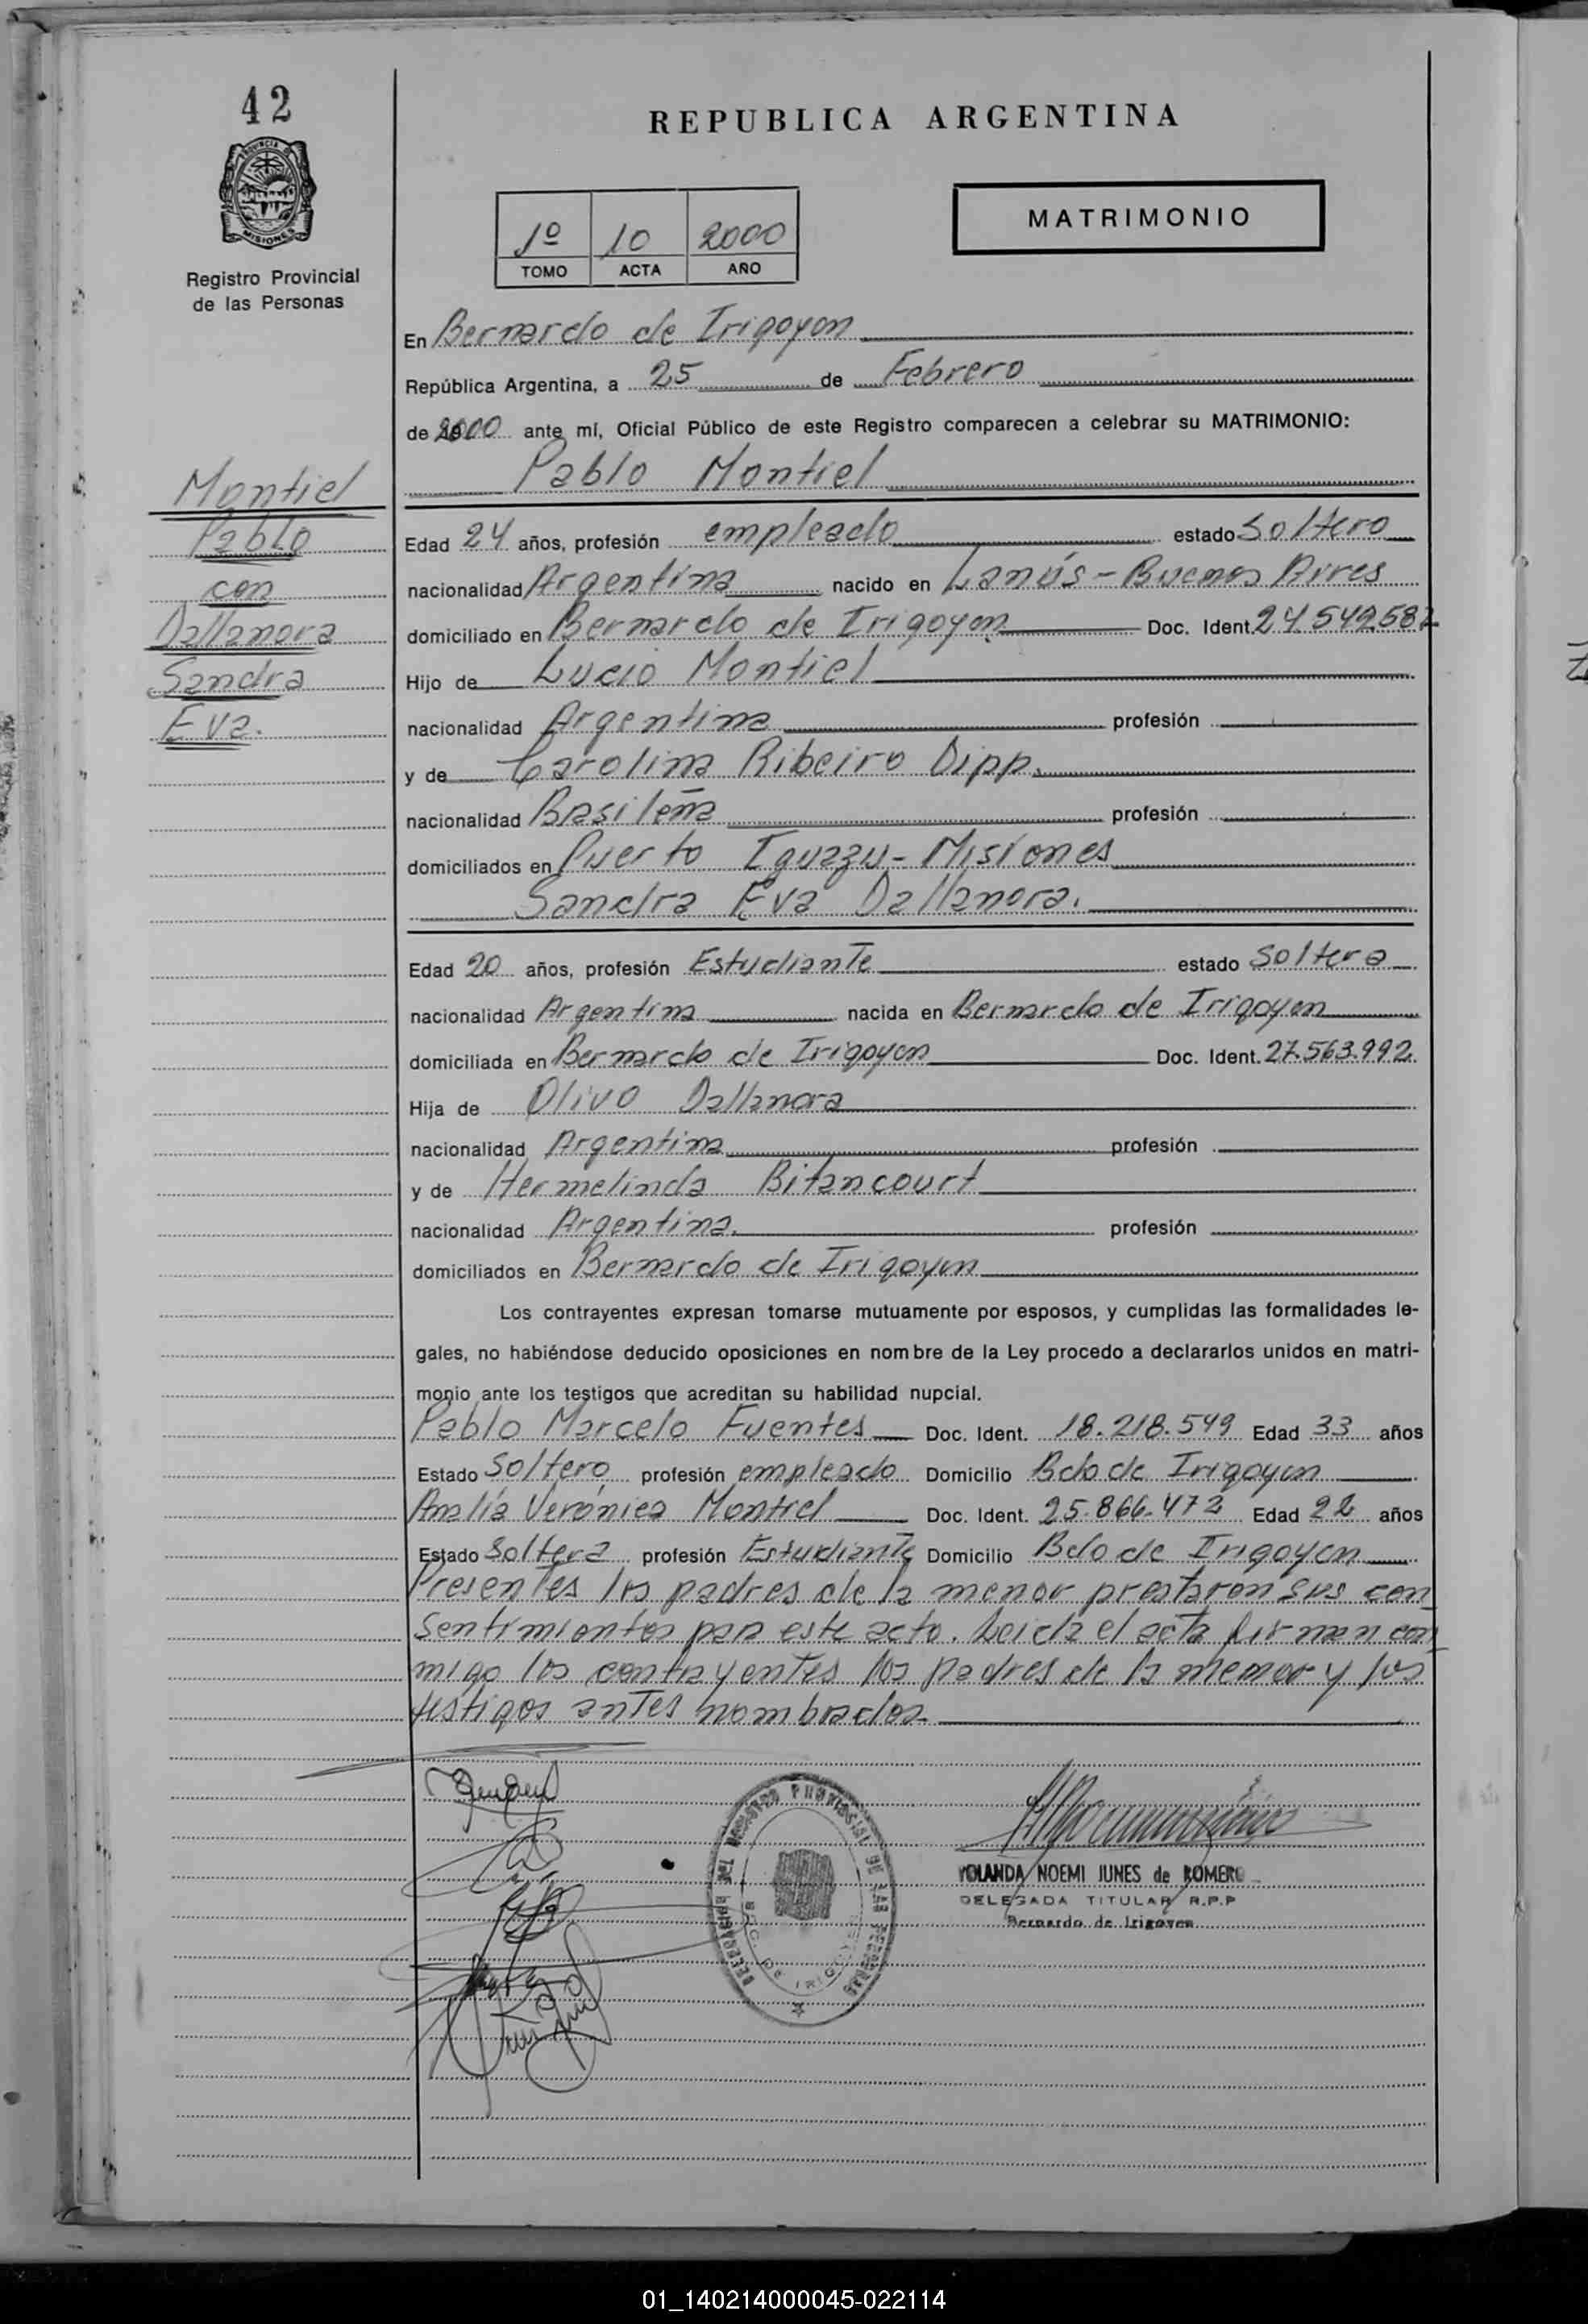 42
REPUBLICA ARGENTINA
PROVINCIA DE
MISIONES
Registro Provincial
de las Personas
1º 10 2000
TOMO ACTA AÑO
MATRIMONIO
En Bernardo de Irigoyen
República Argentina, a 25 de Febrero
de 2000 ante mí, Oficial Público de este Registro comparecen a celebrar su MATRIMONIO:
Pablo Montiel
Montiel
Pablo
con
Dallanora
Sandra
Eva.
Edad 24 años, profesión empleado estado Soltero
nacionalidad Argentina nacido en Lanús - Buenos Aires
domiciliado en Bernardo de Irigoyen Doc. Ident. 24.542.582
Hijo de Lucio Montiel
nacionalidad Argentina profesión
y de Carolina Ribeiro Dipp.
nacionalidad Brasileña profesión
domiciliados en Puerto Iguazu - Misiones
Sandra Eva Dallanora.
Edad 20 años, profesión Estudiante estado Soltera
nacionalidad Argentina nacida en Bernardo de Irigoyen
domiciliada en Bernardo de Irigoyen Doc. Ident. 27.563.992
Hija de Olivo Dallanora
nacionalidad Argentina profesión
y de Hermelinda Bitancourt
nacionalidad Argentina. profesión
domiciliados en Bernardo de Irigoyen
Los contrayentes expresan tomarse mutuamente por esposos, y cumplidas las formalidades le-
gales, no habiéndose deducido oposiciones en nombre de la Ley procedo a declararlos unidos en matri-
monio ante los testigos que acreditan su habilidad nupcial.
Pablo Marcelo Fuentes Doc. Ident. 18.218.549 Edad 33 años
Estado Soltero profesión empleado Domicilio Bdo de Irigoyen
Analía Verónica Montiel Doc. Ident. 25.866.472 Edad 22 años
Estado Soltera profesión Estudiante Domicilio Bdo de Irigoyen
Presentes los padres de la menor prestaron sus con
sentimientos para este acto. Leida el acta firman con
migo los contrayentes los padres de la menor y los
testigos antes nombrados.
DELEGACION DEL REGISTRO PROVINCIAL DE LAS PERSONAS
BDO. DE IRIGOYEN
YOLANDA NOEMI JUNES de ROMERO
DELEGADA TITULAR R.P.P
Bernardo de Irigoyen
01_140214000045-022114